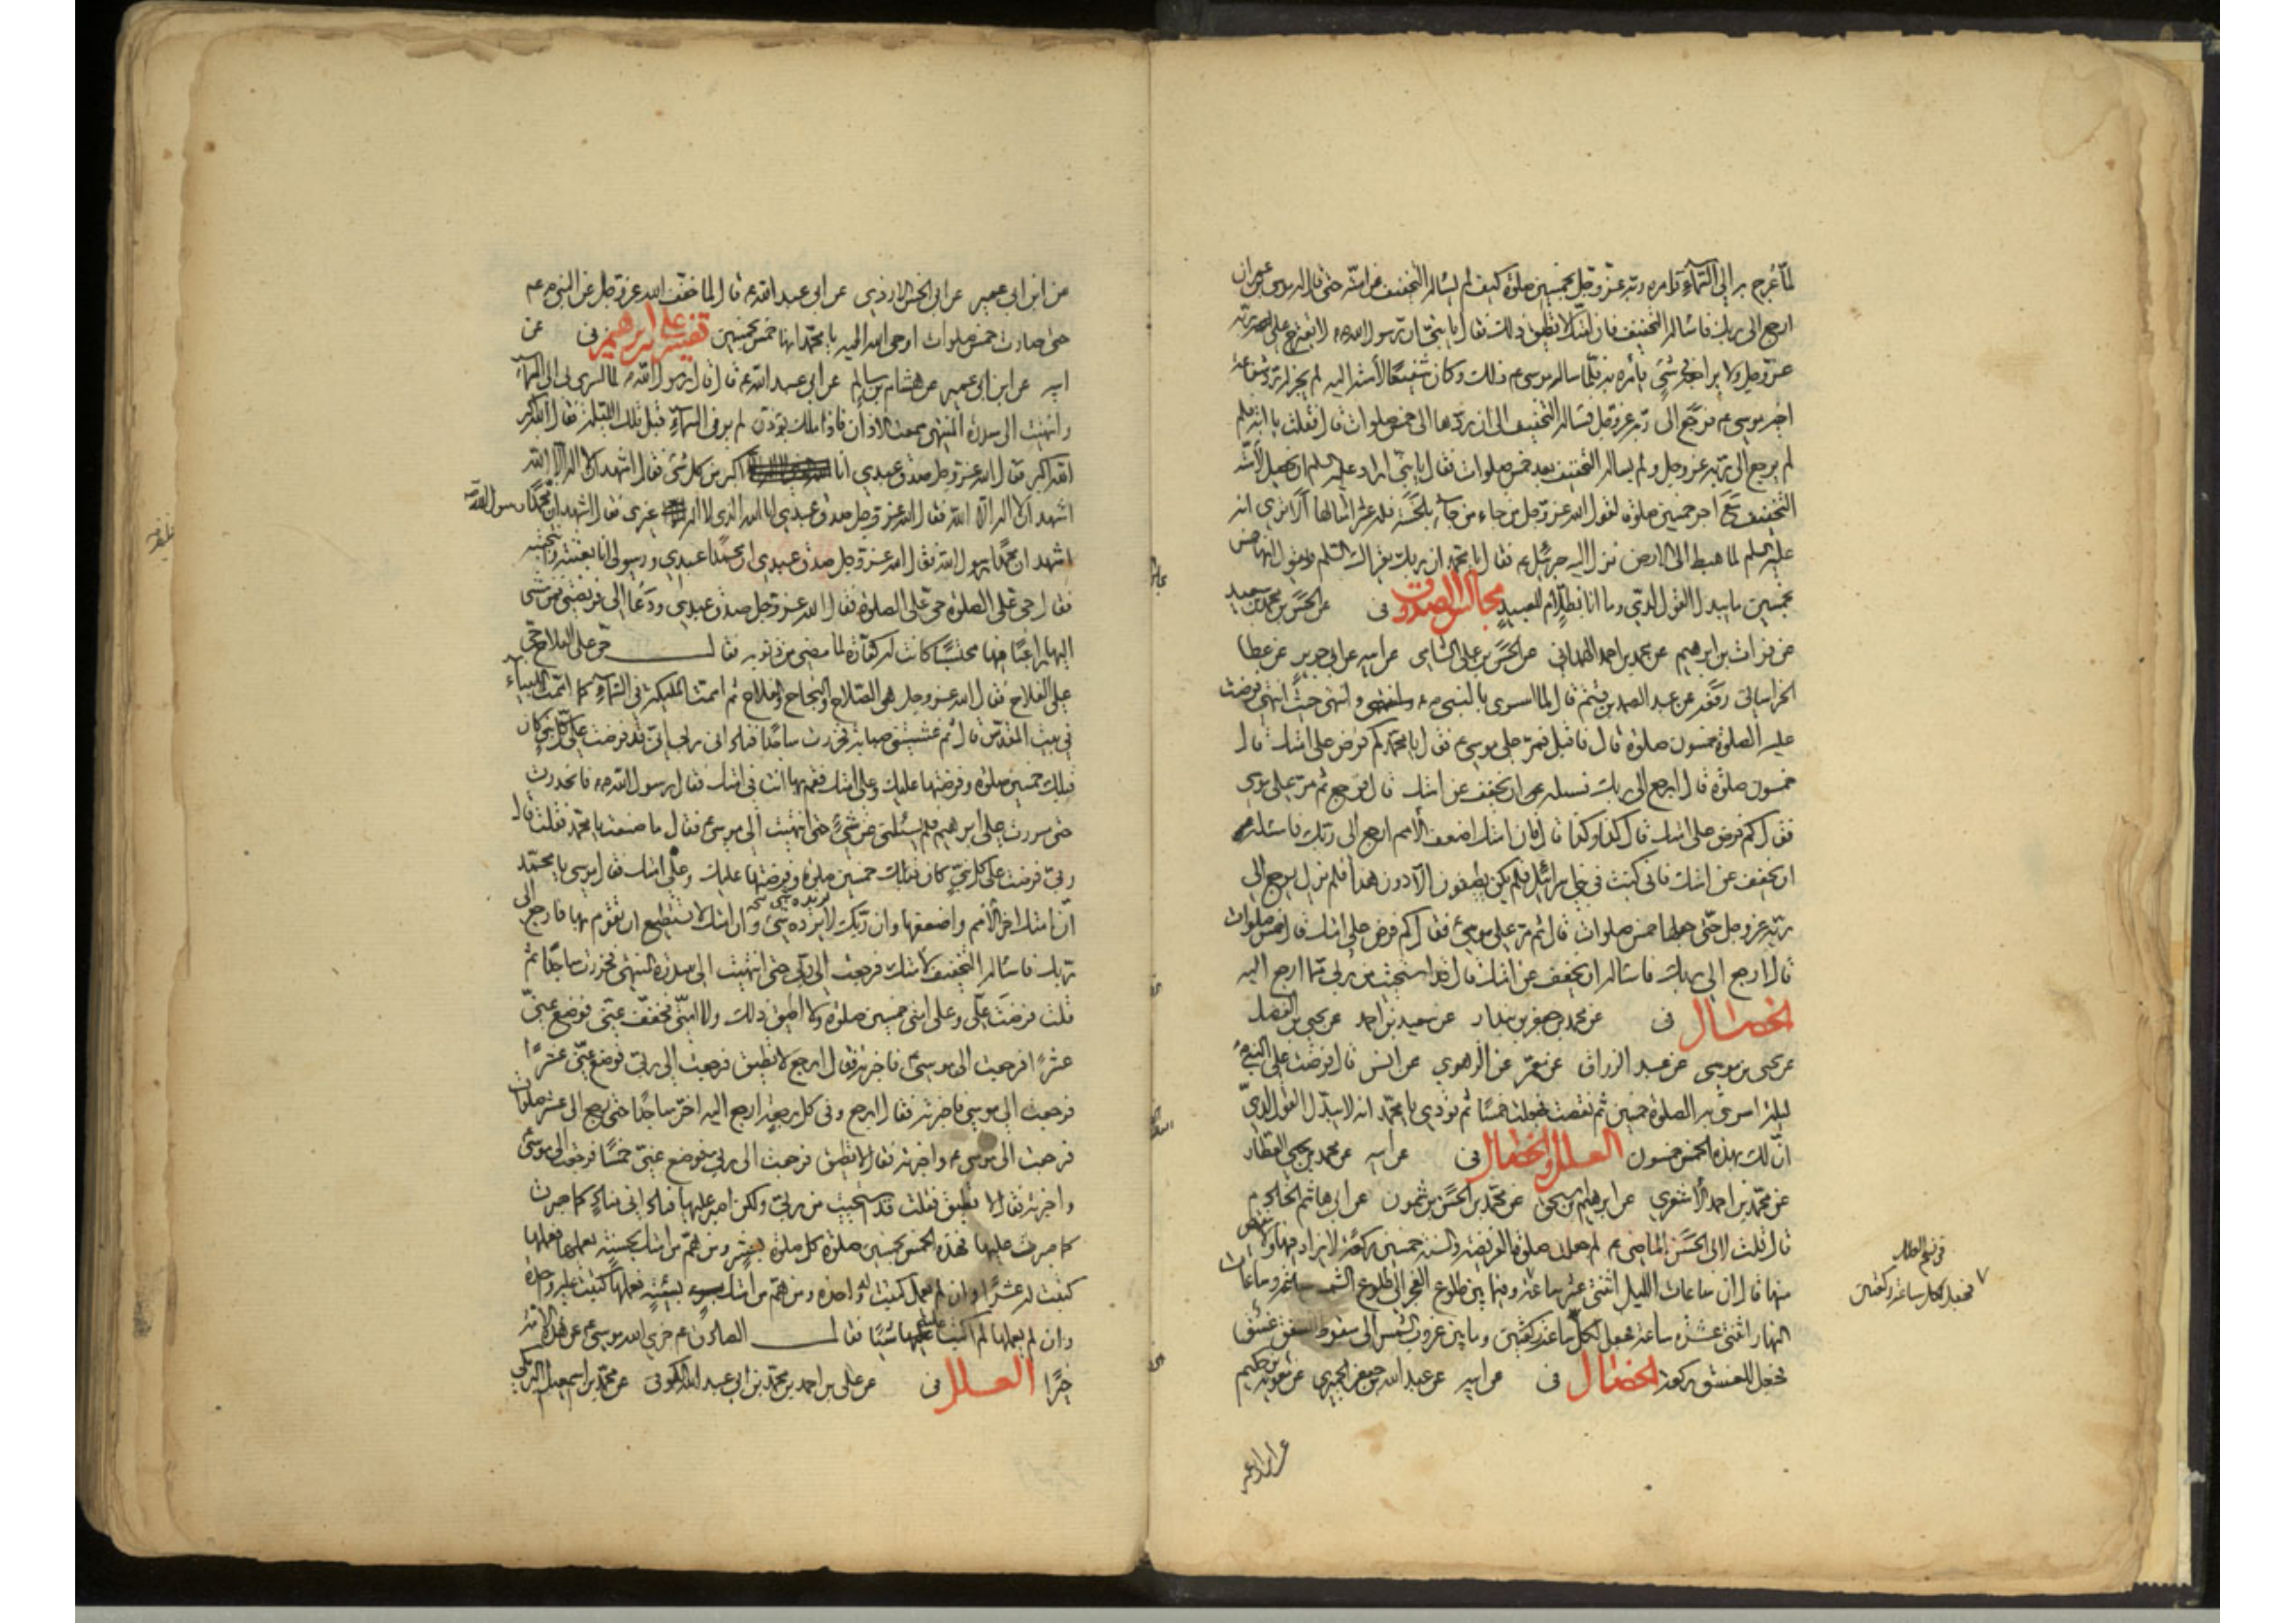 لمّا عُرج به الى السّماء وامره ربّه عزّ وجل بخمسين صلوة كيف لم يسأله التخفيف عن امّته حتى قال له موسى بن عمران
ارجع الى ربك فاسأله التخفيف فان امتك لا تطيق ذلك فقال يا بنىّ ان رسول الله ص لا يقترح على ربّه
عزّ وجل ولا يراجعه فى شئ يأمره به فلمّا سأله موسى ع ذلك وكان شفيعًا لأمّته اليه لم يجز له ردّ شفاعة
اخيه موسى ع فرجع الى ربّه عزّ وجل فسأله التخفيف الى ان ردّها الى خمس صلوات قال فقلت يا ابه فلم
لم يرجع الى ربّه عزّ وجل ولم يسأله التخفيف بعد خمس صلوات فقال يا بنىّ اراد عليه السلم ان يحصل لأمّته
التخفيف مع اجر خمسين صلوة لقول الله عزّ وجل من جاء بالحسنة فله عشر امثالها ألا ترى انه
عليه السلم لما هبط الى الارض نزل اليه جبرئيل ع فقال يا محمد ان ربك يقرئك السّلم ويقول انها خمس
بخمسين ما يبدل القول لدىّ وما انا بظلّام للعبيد مجالس الصدوق فى عن الحسن بن محمد بن سعيد
عن فرات بن ابرهيم عن محمد بن احمد الهمدانى عن الحسن بن على الشامى عن ابيه عن ابى جرير عن عطا
الخراسانى رفعه عن عبد الصمد بن غنم قال لما اسرى بالنبى ص وانتهى حيث انتهى فرضت
عليه الصلوة خمسون صلوة قال فاقبل فمرّ على موسى ع فقال يا محمد كم فرض على امّتك قال
خمسون صلوة قال ارجع الى ربك فسله ان يخفف عن امتك قال فرجع ثم مرّ على موسى
فقال كم فرض على امتك قال كذا وكذا قال فان امتك اضعف الأمم ارجع الى ربّك فاسئله
ان يخفف عن امتك فانى كنت فى بنى اسرائيل فلم يكن يطيقون الّا دون هذا فلم يزل يرجع الى
ربّه عزّ وجل حتّى جعلها خمس صلوات قال ثم مرّ على موسى ع فقال كم فرض على امتك قال خمس صلوات
قال ارجع الى ربك فاسأله ان يخفف عن امتك قال قد استحييت من ربى مما ارجع اليه
الخصال فى عن محمد بن جعفر بن بندار عن سعيد بن احمد عن يحيى بن الفضل
عن يحيى بن موسى عن عبد الرزاق عن معمّر عن الزهرى عن انس قال فرضت على النبى ص
ليلة اسرى به الصلوة خمسين ثم نقصت فجعلت خمسًا ثم نودى يا محمّد انه لا يبدّل القول لدىّ
انّ لك بهذه الخمس خمسون العلل والخصال فى عن ابيه عن محمد بن يحيى العطّار
عن محمّد بن احمد الأشعرى عن ابرهيم بن اسحق عن محمّد بن الحسن بن شمون عن ابى هاشم الخادم
قال قلت لابى الحسن الماضى ع لم جعلت صلوة الفريضة والسنه خمسين ركعة لا يزاد فيها ولا ينقص
منها قال ان ساعات الليل اثنتى عشر ساعة وفيما بين طلوع الفجر الى طلوع الشمس ساعة وساعات
النهار اثنتى عشرة ساعة فجعل لكلّ ساعة ركعتين وما بين غروب الشمس الى سقوط الشفق غسق
فجعل للغسق ركعة الخصال فى عن ابيه عن عبد الله بن جعفر الحميرى عن معوية بن حكيم
فجعل لكل ساعة ركعتين
عن ابن ابى عمير
عن ابن ابى عمير عن ابى الحسن الازدى عن ابى عبد الله ع قال لما خفّف الله عزّ وجل عن النبى ص
حتى صارت خمس صلوات اوحى الله اليه يا محمّد انها خمس بخمسين تفسير على بن ابرهيم فى عن
ابيه عن ابن ابى عمير عن هشام بن سالم عن ابى عبد الله ع قال قال رسول الله ص لما اسرى بى الى السّماء
وانتهيت الى سدرة المنتهى سمعت الاذان فاذا ملك يؤذن لم ير فى السّماء قبل تلك الليلة فقال الله اكبر
الله اكبر فقال الله عزّ وجل صدق عبدى انا اكبر من كل شئ فقال اشهد ان لا اله الّا الله
اشهد ان لا اله الّا الله فقال الله عزّ وجل صدق عبدى انا الله الذى لا اله غيرى فقال اشهد ان محمّدًا رسول الله
اشهد ان محمّدًا رسول الله فقال الله عزّ وجل صدق عبدى ان محمّدًا عبدى ورسولى انا بعثته وانتجبته
فقال حىّ على الصلوة حىّ على الصلوة فقال الله عزّ وجل صدق عبدى ودعا الى فريضتى فمن مشى
اليها راغبًا فيها محتسبًا كانت له كفّارة لما مضى من ذنوبه فقال حىّ على الفلاح حىّ
على الفلاح فقال الله عزّ وجل هى الصّلاح والنجاح والفلاح ثم اممت الملئكة فى السّماء كما اممت الانبياء
فى بيت المقدّس قال ثم غشيتنى صبابة فخررت ساجدًا فنادانى ربى انّى قد فرضت على كلّ نبىّ كان
قبلك خمسين صلوة وفرضتها عليك وعلى امتك فقم بها انت فى امتك فقال رسول الله ص فانحدرت
حتى مررت على ابرهيم فلم يسئلنى عن شئ حتى انتهيت الى موسى ع فقال ما صنعت يا محمّد فقلت قال
ربىّ فرضت على كل نبىّ كان قبلك خمسين صلوة وفرضتها عليك وعلى امتك فقال موسى يا محمّد
انّ امتك اخر الأمم واضعفها وان ربّك لا يزده شئ وان امتك لا تستطيع ان تقوم بها فارجع الى
ربك فاسأله التخفيف لامتك فرجعت الى ربّى حتى انتهيت الى سدرة المنتهى فخررت ساجدًا ثم
قلت فرضت علىّ وعلى امتى خمسين صلوة ولا اطيق ذلك ولا امّتى فخفّف عنّى فوضع عنّى
عشرًا فرجعت الى موسى ع فاخبرته فقال ارجع لا تطيق فرجعت الى ربّى فوضع عنّى عشرًا
فرجعت الى موسى فاخبرته فقال ارجع وفى كل رجعة ارجع اليه اخرّ ساجدًا حتى رجع الى عشر صلوات
فرجعت الى موسى ع واخبرته فقال لا تطيق فرجعت الى ربى فوضع عنّى خمسًا فرجعت الى موسى
واخبرته فقال لا تطيق فقلت قد استحييت من ربّى ولكن اصبر عليها فنادانى مناد كما صبرت
كما صبرت عليها فهذه الخمس بخمسين صلوة كل صلوة بعشر ومن همّ من امتك بحسنة يعملها فعملها
كتبت له عشرًا وان لم يعمل كتبت له واحدة ومن همّ من امتك بسيّئة فعملها كتبت عليه واحدة
وان لم يعملها لم اكتب عليه شيئًا فقال الصادق ع جزى الله موسى ع عن هذه الامّة
خيرًا العلل فى عن على بن احمد بن محمّد عن ابى عبد الله الكوفى عن محمّد بن اسمعيل البرمكى